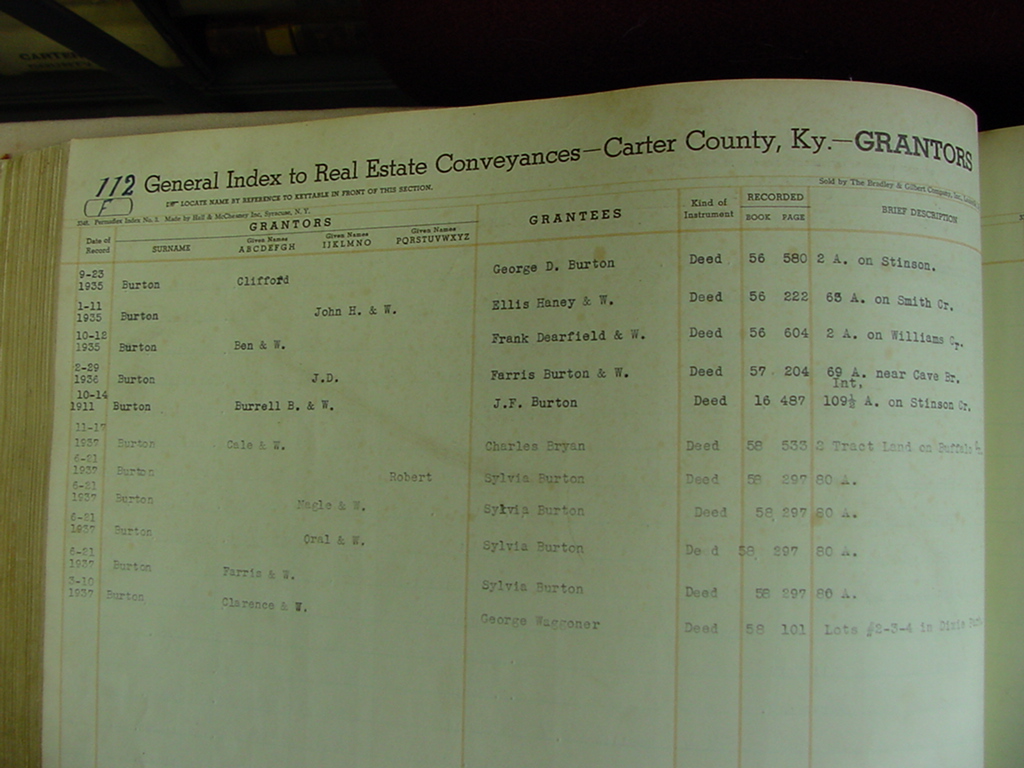 CARTER
112 General Index to Real Estate Conveyances—Carter County, Ky.—GRANTORS
F
LOCATE NAME BY REFERENCE TO KEYTABLE IN FRONT OF THIS SECTION.
Sold by The Bradley & Gilbert Company, Inc.
Permaflex Index No. 2. Made by Hall & McChesney Inc, Syracuse, N. Y.
Date of Record GRANTORS GRANTEES Kind of Instrument RECORDED BRIEF DESCRIPTION
SURNAME Given Names ABCDEFGH Given Names IJKLMNO Given Names PQRSTUVWXYZ BOOK PAGE
9-23 1935 Burton Clifford George D. Burton Deed 56 580 2 A. on Stinson.
1-11 1935 Burton John H. & W. Ellis Haney & W. Deed 56 222 63 A. on Smith Cr.
10-12 1935 Burton Ben & W. Frank Dearfield & W. Deed 56 604 2 A. on Williams Cr.
2-29 1936 Burton J.D. Farris Burton & W. Deed 57 204 69 A. near Cave Br.
Int.
10-14 1911 Burton Burrell B. & W. J.F. Burton Deed 16 487 109½ A. on Stinson Cr.
11-17 1937 Burton Cale & W. Charles Bryan Deed 58 533 2 Tract Land on Buffalo
6-21 1937 Burton Robert Sylvia Burton Deed 58 297 80 A.
6-21 1937 Burton Nagle & W. Sylvia Burton Deed 58 297 80 A.
6-21 1937 Burton Oral & W. Sylvia Burton Deed 58 297 80 A.
6-21 1937 Burton Farris & W. Sylvia Burton Deed 58 297 80 A.
3-10 1937 Burton Clarence & W. George Waggoner Deed 58 101 Lots #2-3-4 in Dixie